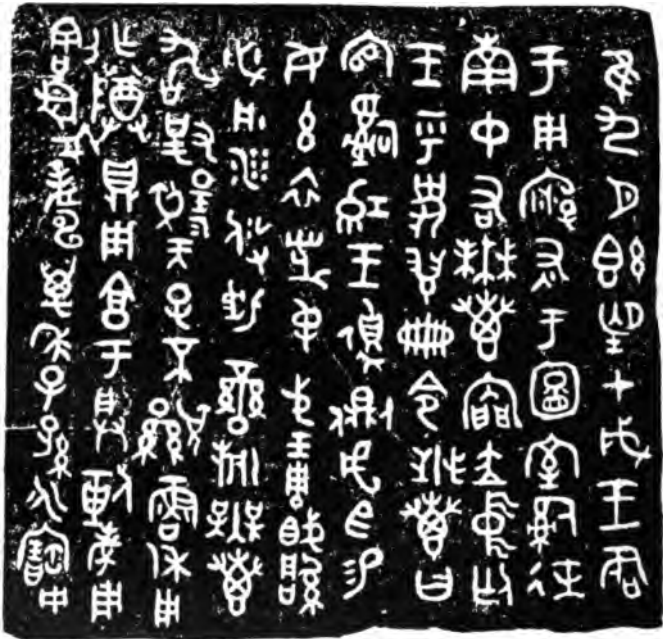 隹九月既望甲戌王各
于周廟于圖室嗣徒
南中右無叀內門立中廷
王乎史翏冊令無叀曰
官嗣王側虎臣易
女玄衣黹屯戈琱厚
必彤沙攸勒鑾旂無叀
敢對揚天子不顯魯休用
乍尊鼎用享于朕剌考用
割眉壽萬年子孫永寶用